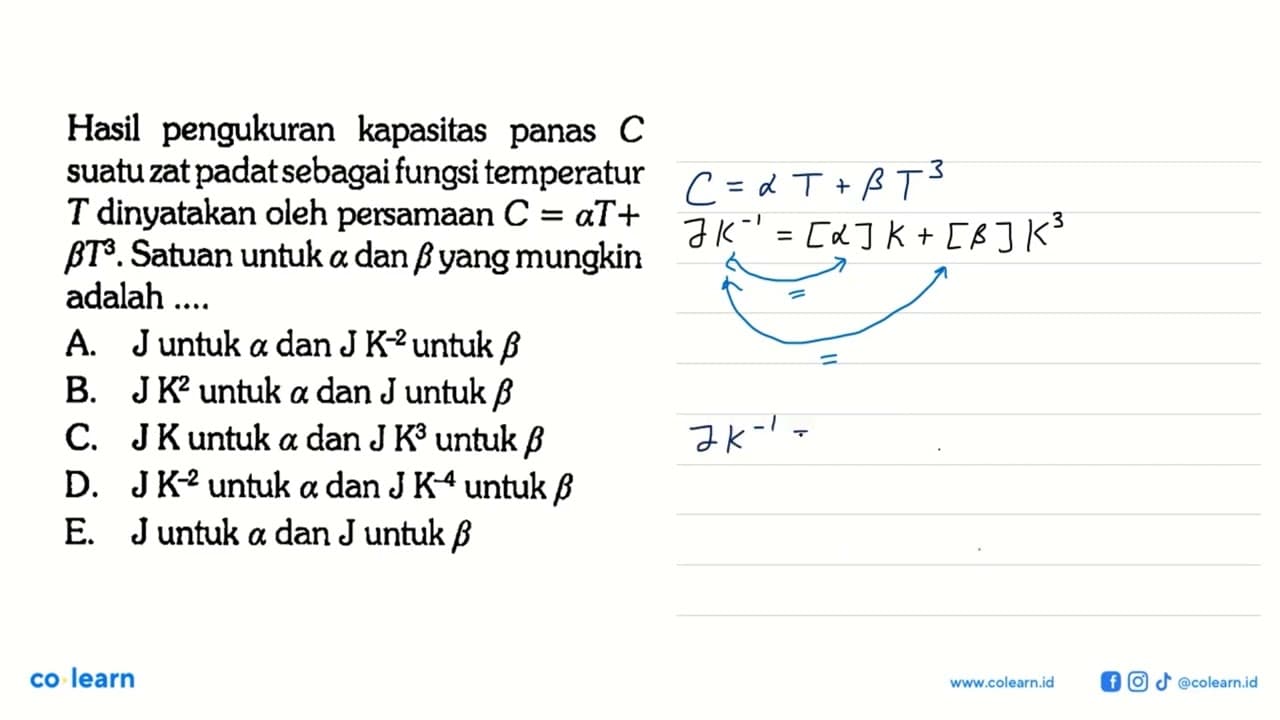 Hasil pengukuran kapasitas panas C
suatu zat padat sebagai fungsi temperatur
T dinyatakan oleh persamaan C = αT+
βT³. Satuan untuk α dan β yang mungkin
adalah ....
A. J untuk α dan J K⁻² untuk β
B. J K² untuk α dan J untuk β
C. J K untuk α dan J K³ untuk β
D. J K⁻² untuk α dan J K⁻⁴ untuk β
E. J untuk α dan J untuk β
C = α T + β T³
J K⁻¹ = [α] K + [β] K³
=
=
J K⁻¹ =
co learn
www.colearn.id
@colearn.id